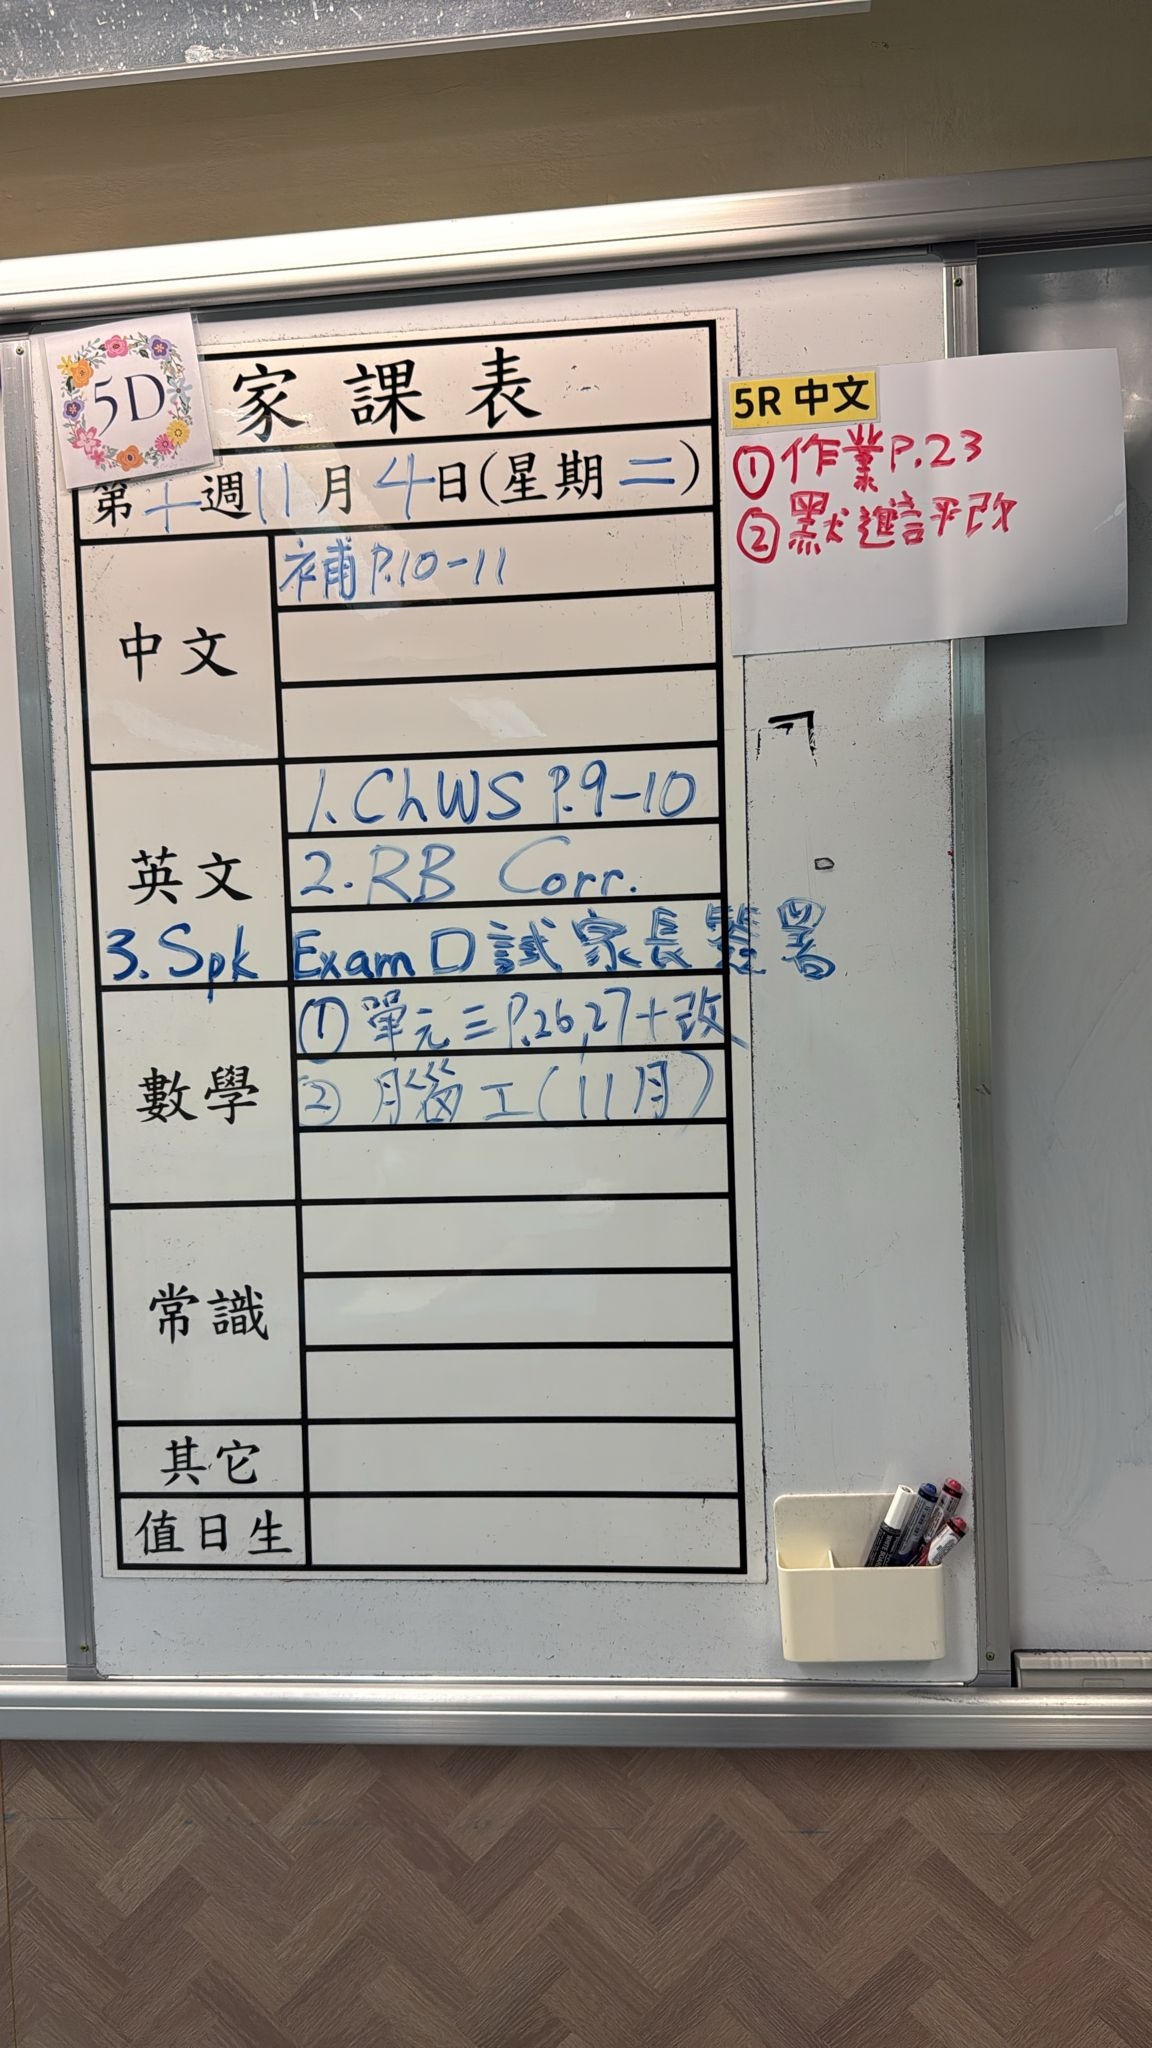 5D
家課表
第十週11月4日(星期二)
中文
補P.10-11
英文
1. ChWS P.9-10
2. RB Corr.
3. Spk Exam 口試家長簽署
數學
① 單元三P.26,27+改
② 腦工(11月)
常識
其它
值日生
5R 中文
① 作業P.23
② 默進評改